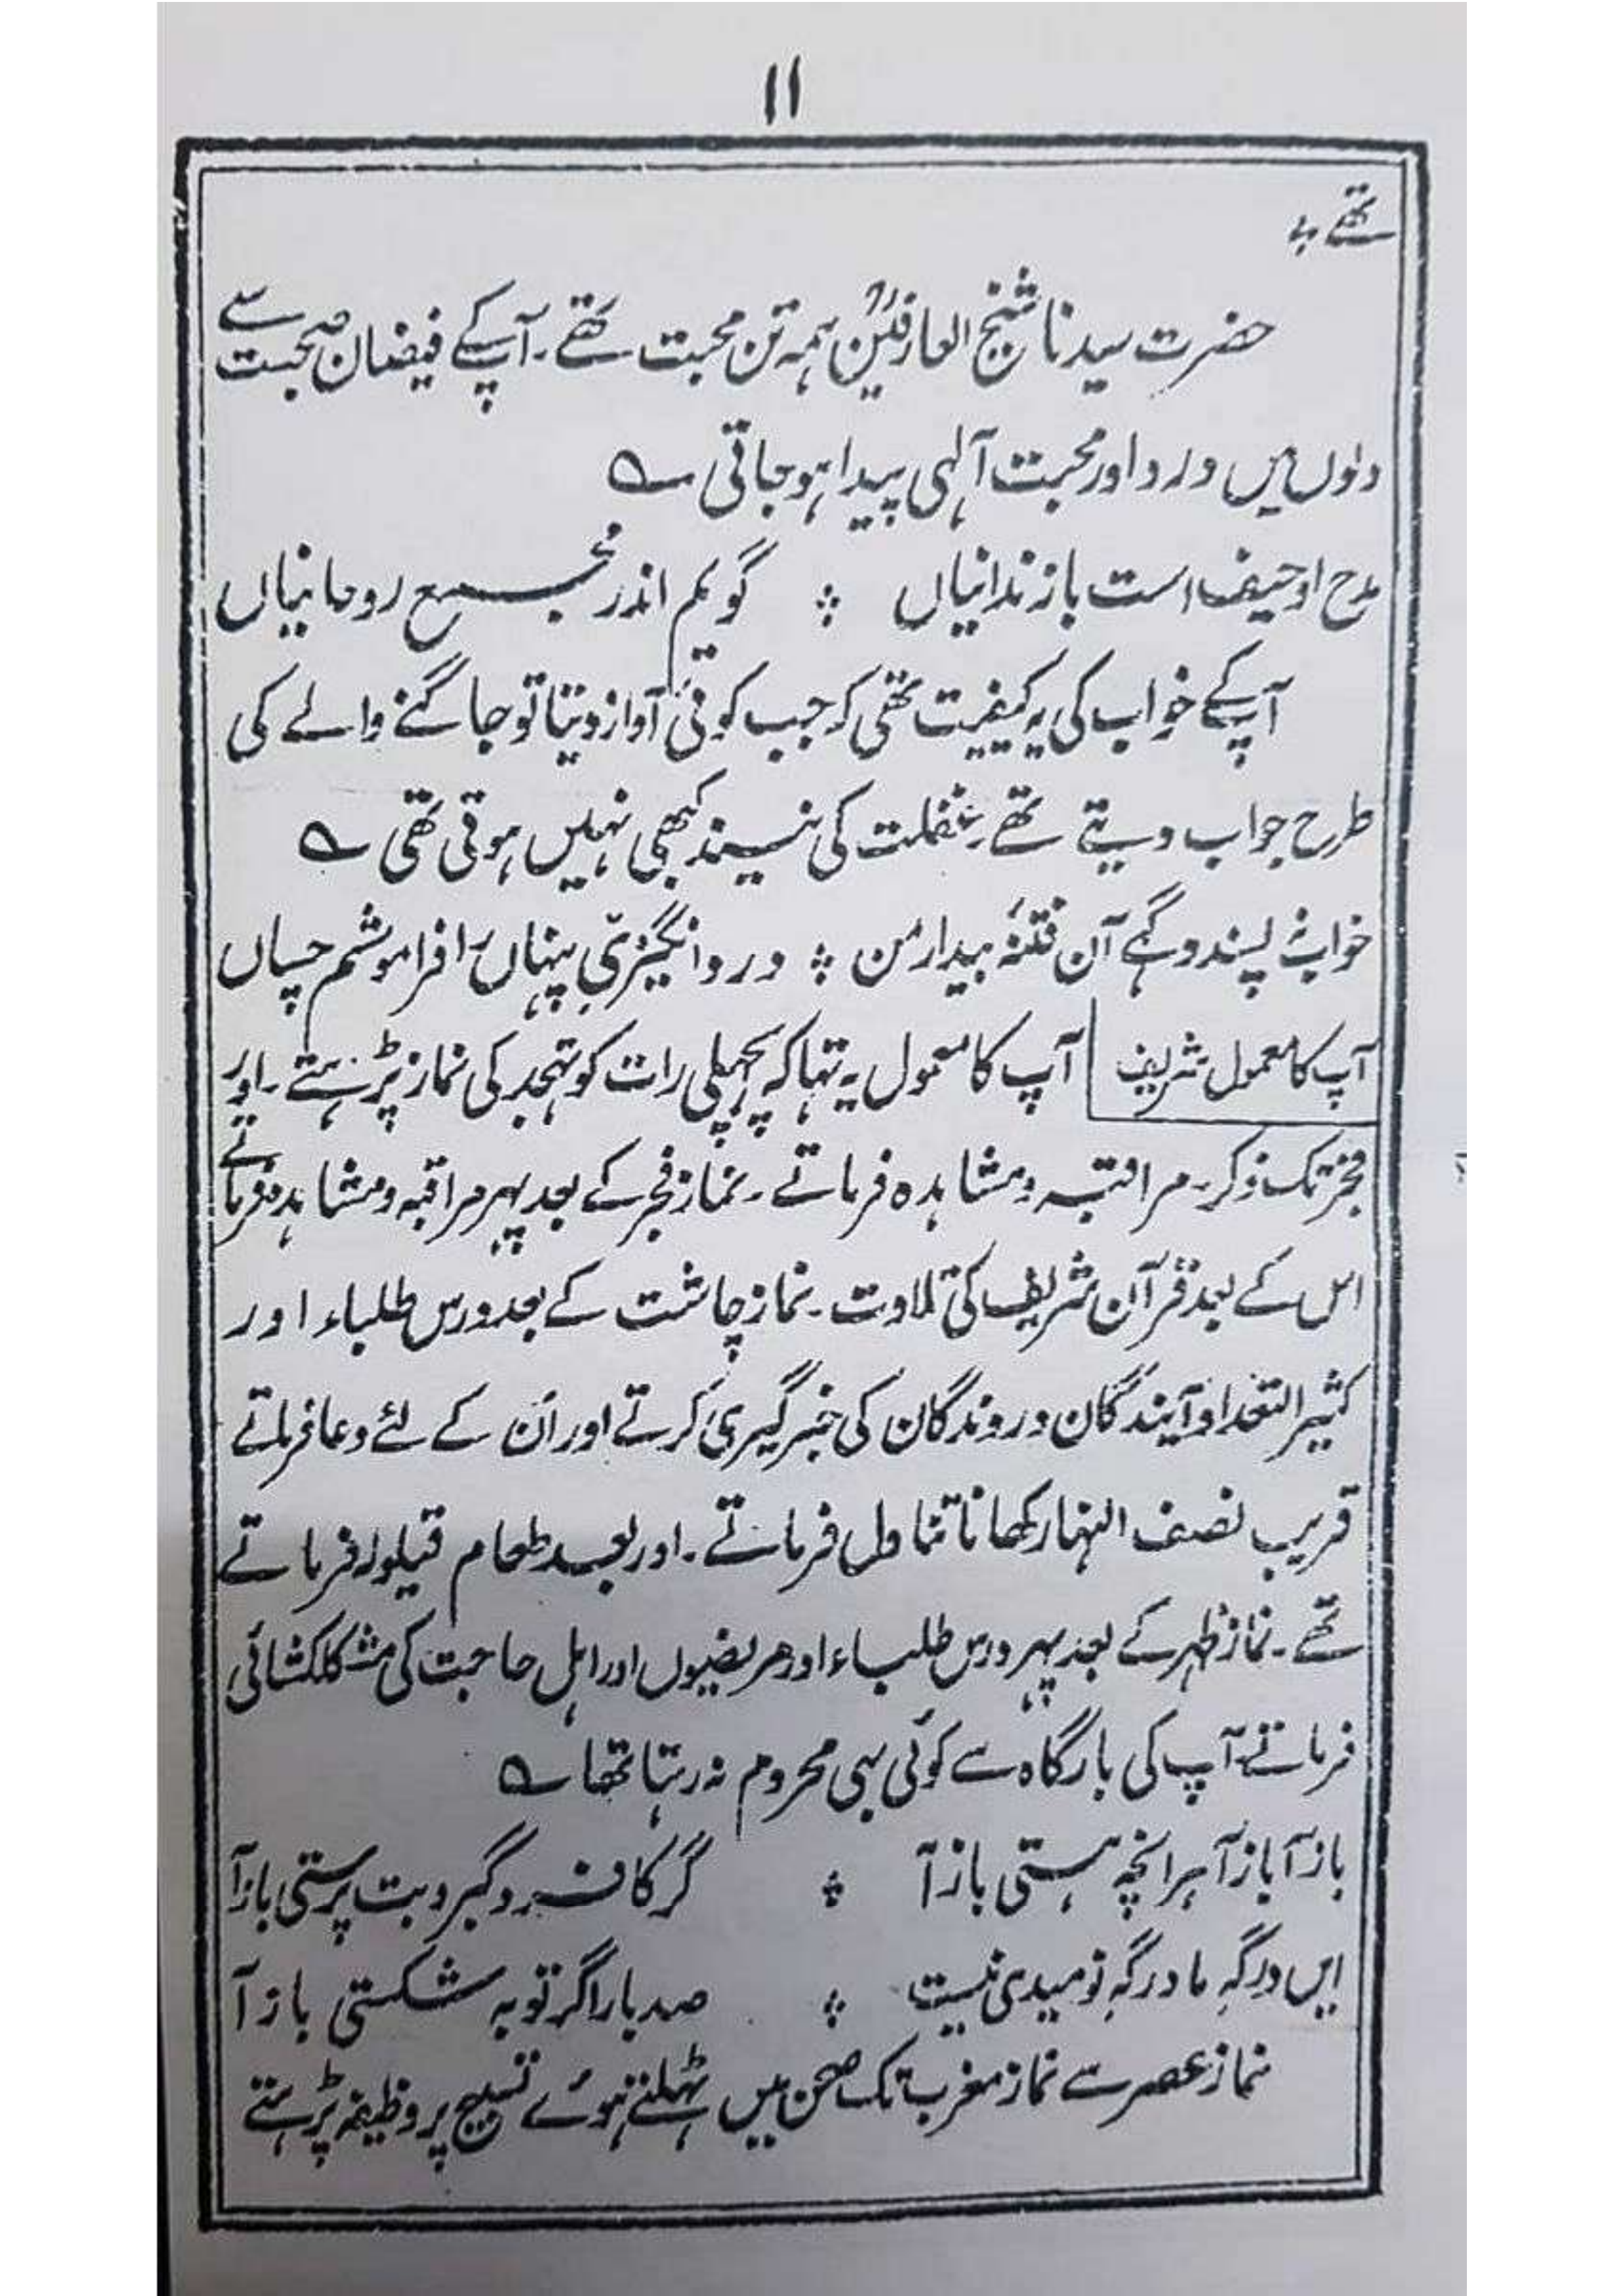 ۱۱
تھے ؎
حضرت سیدنا شیخ العارفینؒ ہمہ تن محبت تھے۔ آپ کے فیضان صحبت سے
دلوں میں درد اور محبت آلٰہی پیدا ہو جاتی ؎
مدح او حیف است با زندانیاں ؞ گویم اندر مجمع روحانیاں
آپ کے خواب کی یہ کیفیت تھی کہ جب کوئی آواز دیتا تو جاگنے والے کی
طرح جواب دیتے تھے۔ غفلت کی نیند کبھی نہیں ہوتی تھی ؎
خواب پسندد گہے آن فتنۂ بیدار من ؞ درد انگیزی پنہاں را فراموشم چساں
آپ کا معمول شریف آپ کا معمول یہ تہا کہ پچھلی رات کو تہجد کی نماز پڑہتے۔ اور
فجر تک ذکر۔ مراقبہ و مشاہدہ فرماتے۔ نماز فجر کے بعد پہر مراقبہ و مشاہدہ فرماتے
اس کے بعد قرآن شریف کی تلاوت۔ نماز چاشت کے بعد درس طلباء اور
کثیر التعداد آیندگان و روندگان کی خبر گیری کرتے اور اُن کے لئے دعا فرماتے
قریب نصف النہار کھانا تناول فرماتے۔ اور بعد طعام قیلولہ فرماتے
تھے۔ نماز ظہر کے بعد پہر درس طلباء اور مریضوں اور اہل حاجت کی مشکلکشائی
فرماتے آپ کی بارگاہ سے کوئی بہی محروم نہ رہتا تھا ؎
باز آ باز آ ہر انچہ ہستی باز آ ؞ گر کافر و گبر و بت پرستی باز آ
ایں درگہِ ما درگہِ نومیدی نیست ؞ صد بار اگر توبہ شکستی باز آ
نماز عصر سے نماز مغرب تک صحن میں ٹہلتے ہوئے تسبیح پر وظیفہ پڑہتے